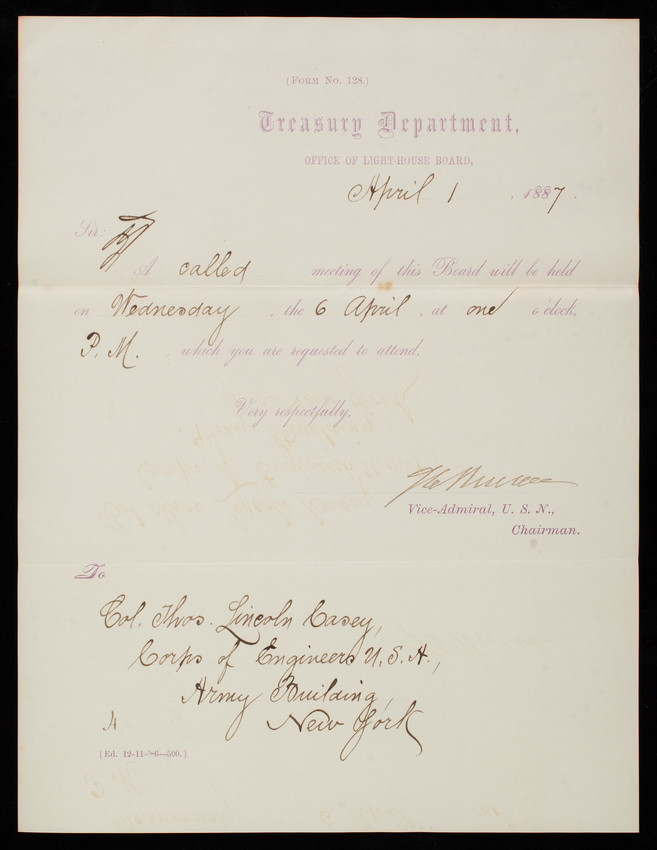 (Form No. 128.)
Treasury Department,
OFFICE OF LIGHT-HOUSE BOARD,
April 1, 1887.
Sir:
A called meeting of this Board will be held
on Wednesday, the 6 April, at one o'clock,
P. M., which you are requested to attend.
Very respectfully,
Vice-Admiral, U. S. N.,
Chairman.
To
Col. Thos. Lincoln Casey,
Corps of Engineers U. S. A.,
Army Building,
New York
(Ed. 12-11-'86—500.)